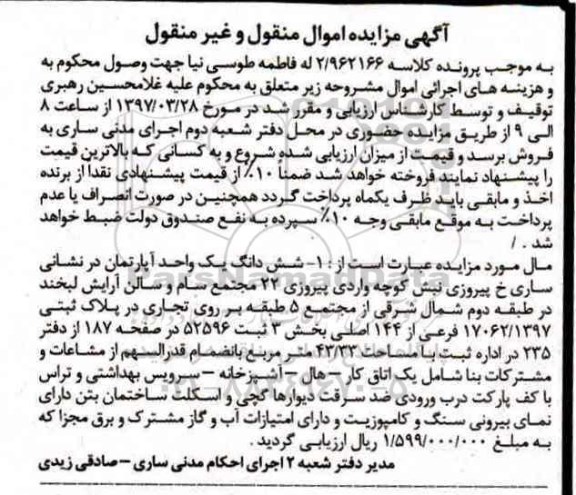 آگهی مزایده اموال منقول و غیر منقول
به موجب پرونده کلاسه ۲/۹۶۲۱۶۶ له فاطمه طوسی نیا جهت وصول محکوم به
و هزینه های اجرائی اموال مشروحه زیر متعلق به محکوم علیه غلامحسین رهبری
توقیف و توسط کارشناس ارزیابی و مقرر شد در مورخ ۱۳۹۷/۰۳/۲۸ از ساعت ۸
الی ۹ از طریق مزایده حضوری در محل دفتر شعبه دوم اجرای مدنی ساری به
فروش برسد و قیمت از میزان ارزیابی شده شروع و به کسانی که بالاترین قیمت
را پیشنهاد نمایند فروخته خواهد شد ضمنا ۱۰٪ از قیمت پیشنهادی نقدا از برنده
اخذ و مابقی باید ظرف یکماه پرداخت گردد همچنین در صورت انصراف یا عدم
پرداخت به موقع مابقی وجه ۱۰٪ سپرده به نفع صندوق دولت ضبط خواهد
شد . /
مال مورد مزایده عبارت است از : ۱- شش دانگ یک واحد آپارتمان در نشانی
ساری خ پیروزی نبش کوچه واردی پیروزی ۲۲ مجتمع سام و سالن آرایش لبخند
در طبقه دوم شمال شرقی از مجتمع ۵ طبقه بر روی تجاری در پلاک ثبتی
۱۷۰۶۲/۱۳۹۷ فرعی از ۱۴۴ اصلی بخش ۳ ثبت ۵۲۵۹۶ در صفحه ۱۸۷ از دفتر
۲۳۵ در اداره ثبت با مساحت ۴۲/۳۳ متر مربع بانضمام قدرالسهم از مشاعات و
مشترکات بنا شامل یک اتاق کار – هال – آشپزخانه – سرویس بهداشتی و تراس
با کف پارکت درب ورودی ضد سرقت دیوارها گچی و اسکلت ساختمان بتن دارای
نمای بیرونی سنگ و کامپوزیت و دارای امتیازات آب و گاز مشترک و برق مجزا که
به مبلغ ۱/۵۹۹/۰۰۰/۰۰۰ ریال ارزیابی گردید .
مدیر دفتر شعبه ۲ اجرای احکام مدنی ساری – صادقی زیدی
ParsNamadData